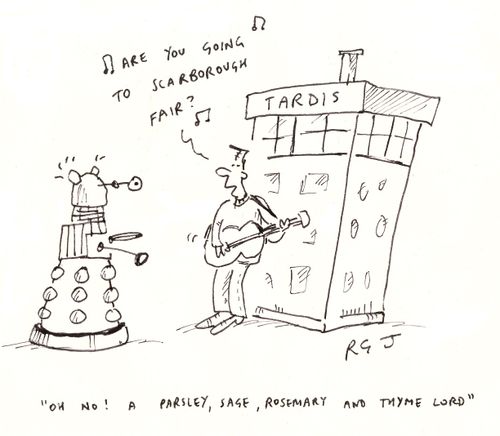 ARE YOU GOING
TO SCARBOROUGH
FAIR?
TARDIS
RGJ
"OH NO! A PARSLEY, SAGE, ROSEMARY AND THYME LORD"